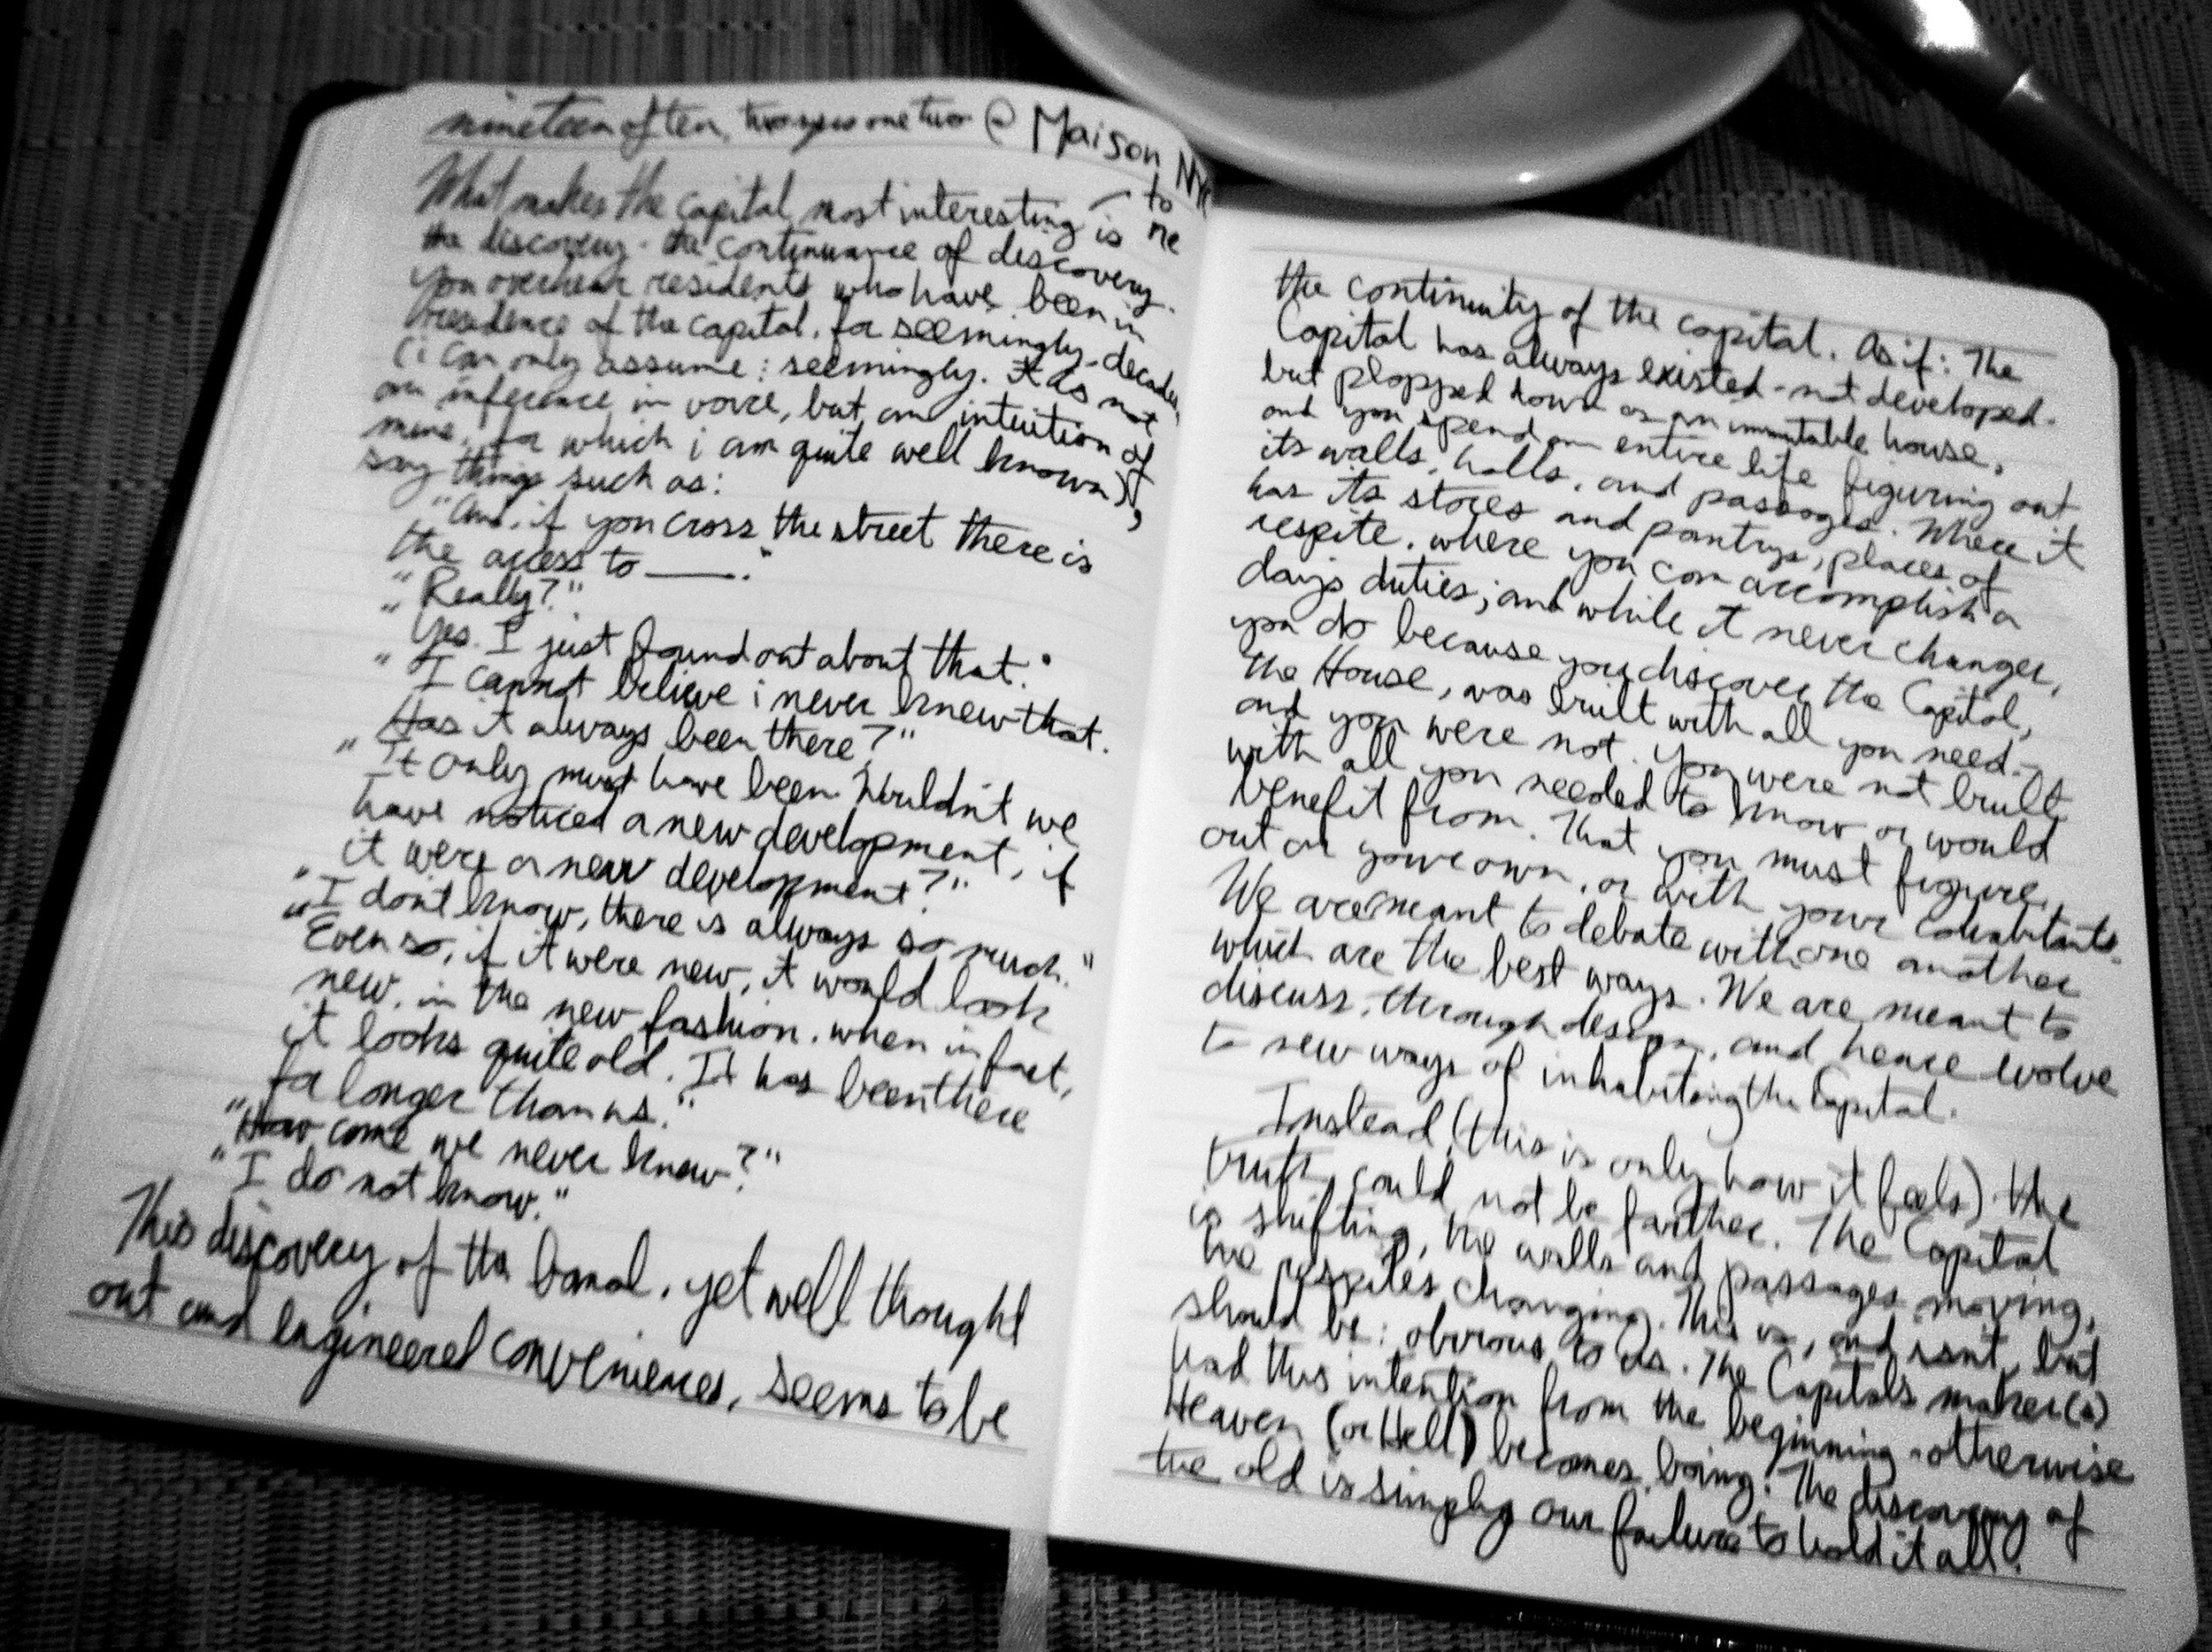 nineteen of ten, one two @ Maison NYC
What makes the capital most interesting – to me is
the discovery - the continuance of discovery.
You overhear residents who have been in
residence of the capital, for seemingly - decades
(i can only assume: seemingly. It is not
an inference in voice, but an intuition of
mine, for which i am quite well known),
say things such as:
"And, if you cross the street there is
the access to ___."
"Really?"
"Yes. I just found out about that."
"I cannot believe i never knew that.
Has it always been there?"
"It only must have been. Wouldn't we
have noticed a new development, if
it were a new development?"
"I don't know, there is always so much."
"Even so, if it were new, it would look
new, in the new fashion, when in fact,
it looks quite old. It has been there
far longer than us."
"How come we never knew?"
"I do not know."
This discovery of the banal, yet well thought
out and engineered conveniences, seems to be
the continuity of the capital. As if: The
Capital has always existed - not developed.
but plopped down as an immutable house,
and you spend an entire life figuring out
its walls, halls, and passages. Where it
has its stores and pantrys, places of
respite, where you can accomplish a
days duties; and while it never changes,
you do because you discover the Capital,
the House, was built with all you need -
and you were not. You were not built
with all you needed to know or would
benefit from. That you must figure
out on your own, or with your cohabitants.
We are meant to debate with one another
which are the best ways. We are meant to
discuss, through design, and hence evolve
to new ways of inhabiting the Capital.
Instead (this is only how it feels) the
truth could not be farther. The Capital
is shifting, the walls and passages moving,
the respites changing. This is, and isn't, but
should be: obvious to us. The Capitals maker(s)
had this intention from the beginning - otherwise
Heaven (or Hell) becomes boring. The discovery of
the old is simply our failure to hold it all.